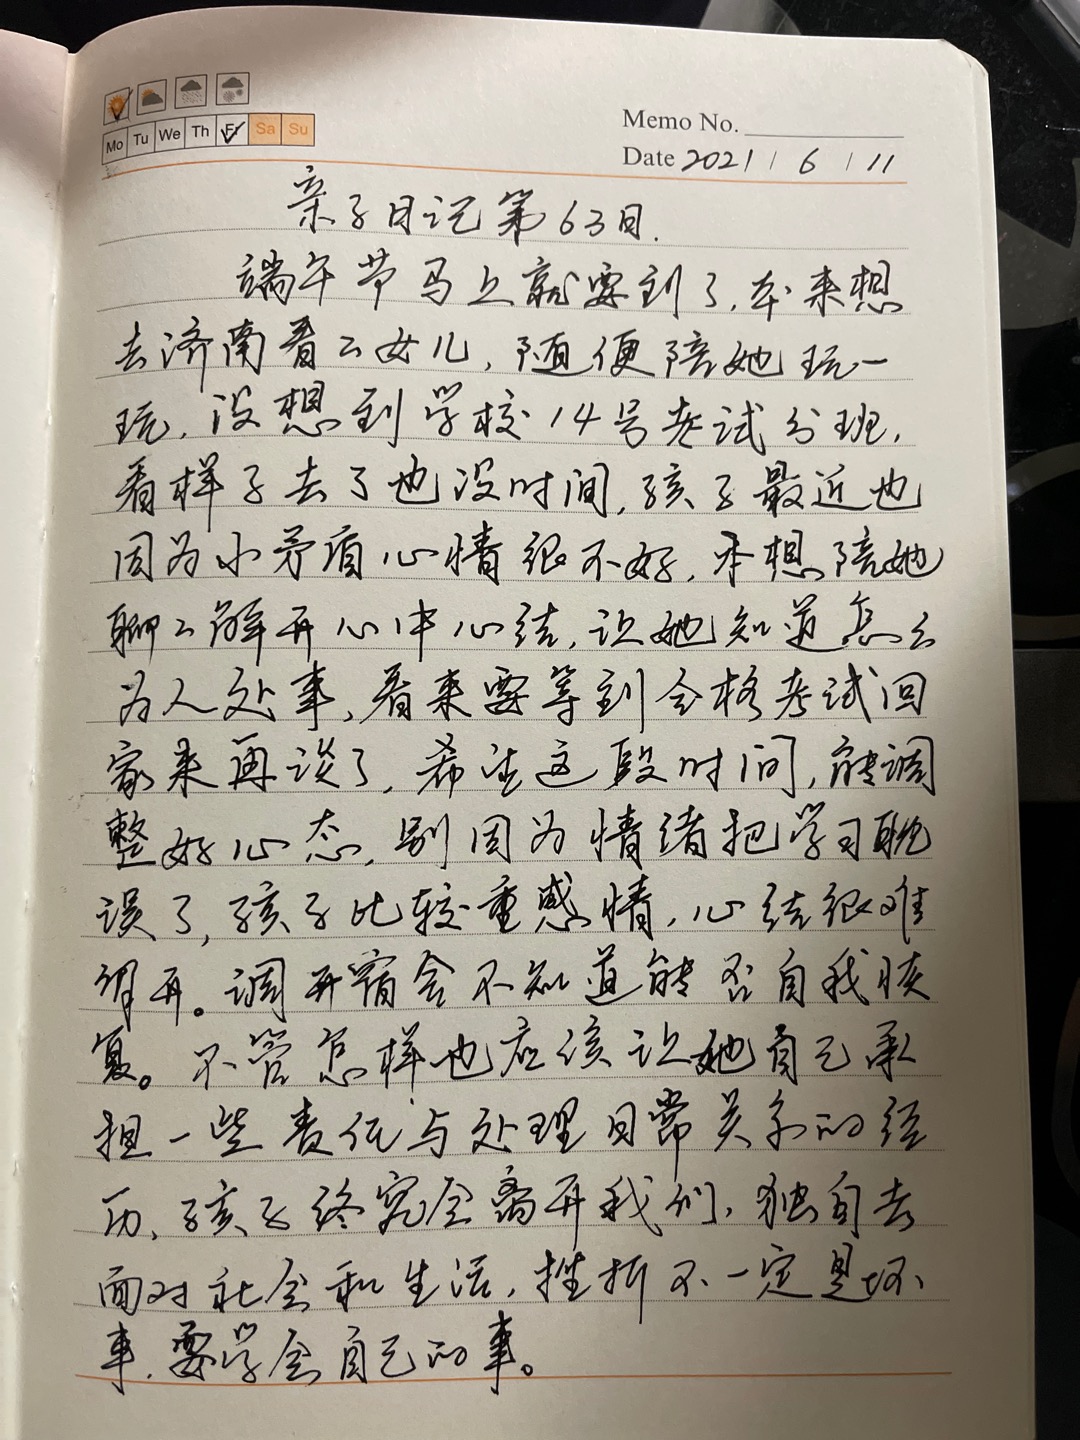 Mo Tu We Th Fr Sa Su
Memo No.
Date 2021 / 6 / 11
亲子日记第63日.
端午节马上就要到了,本来想
去济南看么女儿,随便陪她玩一
玩,没想到学校14号考试分班,
看样子去了也没时间,孩子最近也
因为小矛盾心情很不好,本想陪她
聊么解开心中心结,让她知道怎么
为人处事,看来要等到合格考试回
家来再谈了,希望这段时间,能调
整好心态,别因为情绪把学习耽
误了,孩子比较重感情,心结很难
开。调开宿舍不知道能否自我恢
复。不管怎样也应该让她自己承
担一些责任与处理日常关系的经
历、孩子终究会离开我们,独自去
面对社会和生活,挫折不一定是坏
事,要学会自己的事。